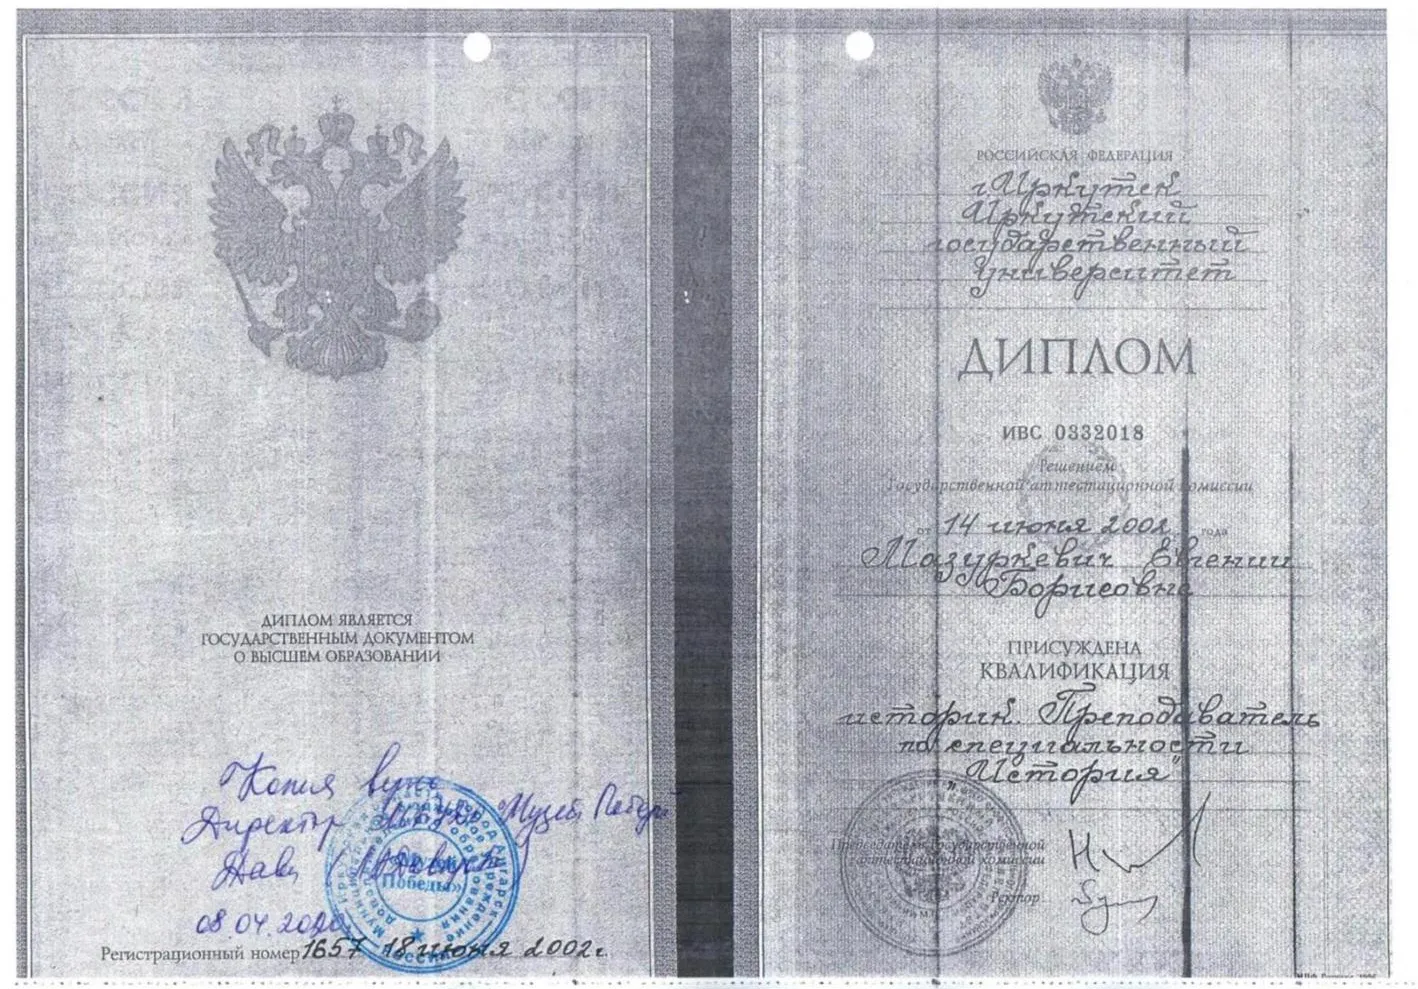 ДИПЛОМ ЯВЛЯЕТСЯ
ГОСУДАРСТВЕННЫМ ДОКУМЕНТОМ
О ВЫСШЕМ ОБРАЗОВАНИИ
Копия
Директор "Музей Победы
08.04.2020
Победы»
Регистрационный номер 1657 18 июня 2002 г.
РОССИЙСКАЯ ФЕДЕРАЦИЯ
г Иркутск
Иркутский
государственный
университет
ДИПЛОМ
ИВС 0332018
Решением
Государственной аттестационной комиссии
от 14 июня 2002 года
Мазуркевич Евгении
Борисовне
ПРИСУЖДЕНА
КВАЛИФИКАЦИЯ
историк. Преподаватель
по специальности
"История"
Председатель Государственной
аттестационной комиссии
Ректор